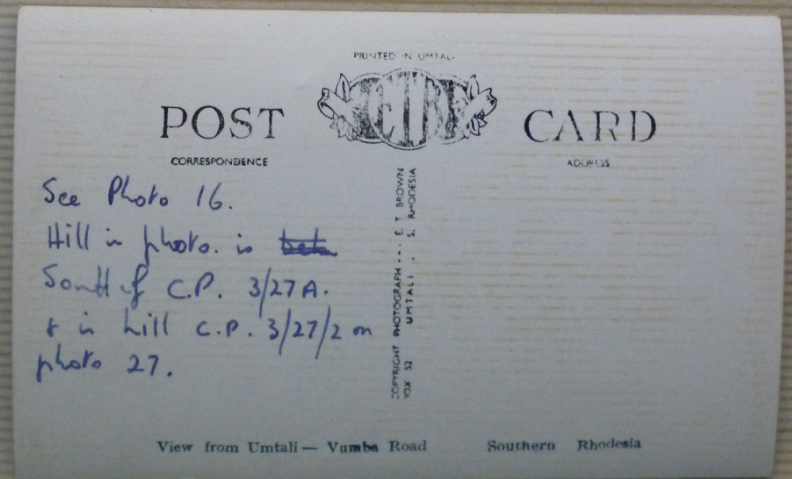 PRINTED IN UMTALI
POST CARD
CORRESPONDENCE
ADDRESS
See Photo 16.
Hill in photo. is
South of C.P. 3/27A.
& is hill C.P. 3/27/2 on
photo 27.
COPYRIGHT PHOTOGRAPH --- E. T BROWN
BOX 52 UMTALI . S. RHODESIA
View from Umtali — Vumba Road Southern Rhodesia